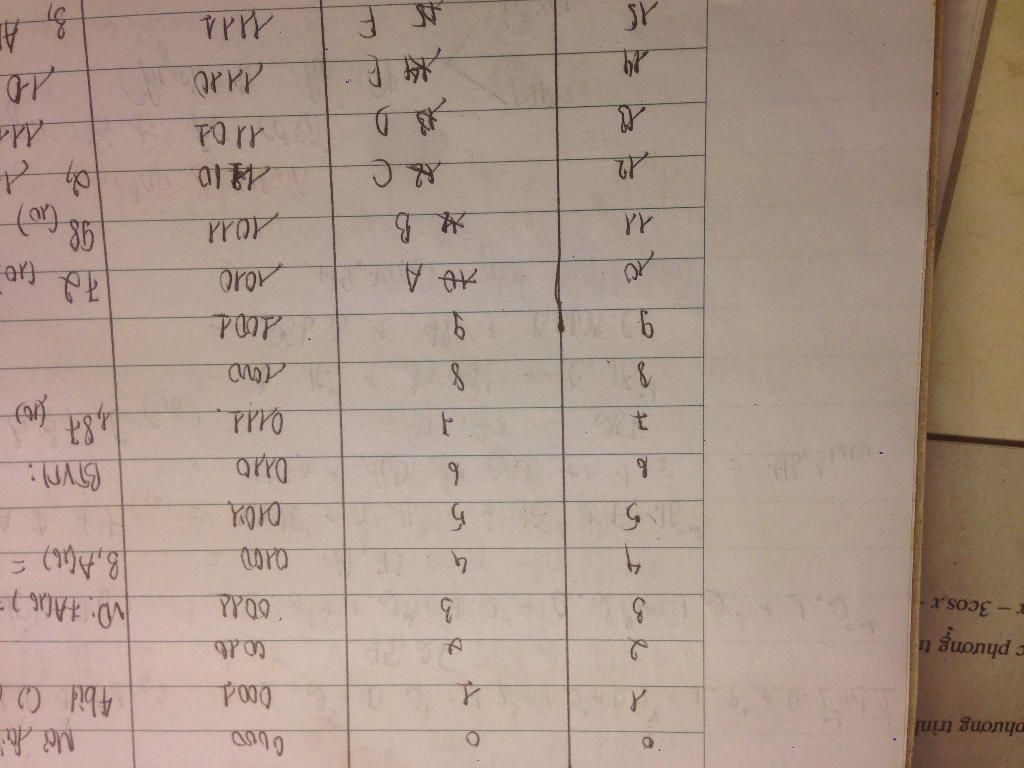 0 0 0000
1 1 0001 4bit C)
2 2 0010
3 3 0011 VD: 7A(16) =
4 4 0100 8,A(16) =
5 5 0101
6 6 0110 BTVN:
7 7 0111 1,87 (10)
8 8 1000
9 9 1001
10 10 A 1010 72 (10)
11 11 B 1011 98 (10)
12 12 C
13 13 D 1101 111
14 14 E 1110 10
15 15 F 1111
phương trình
phương
- 3cosx